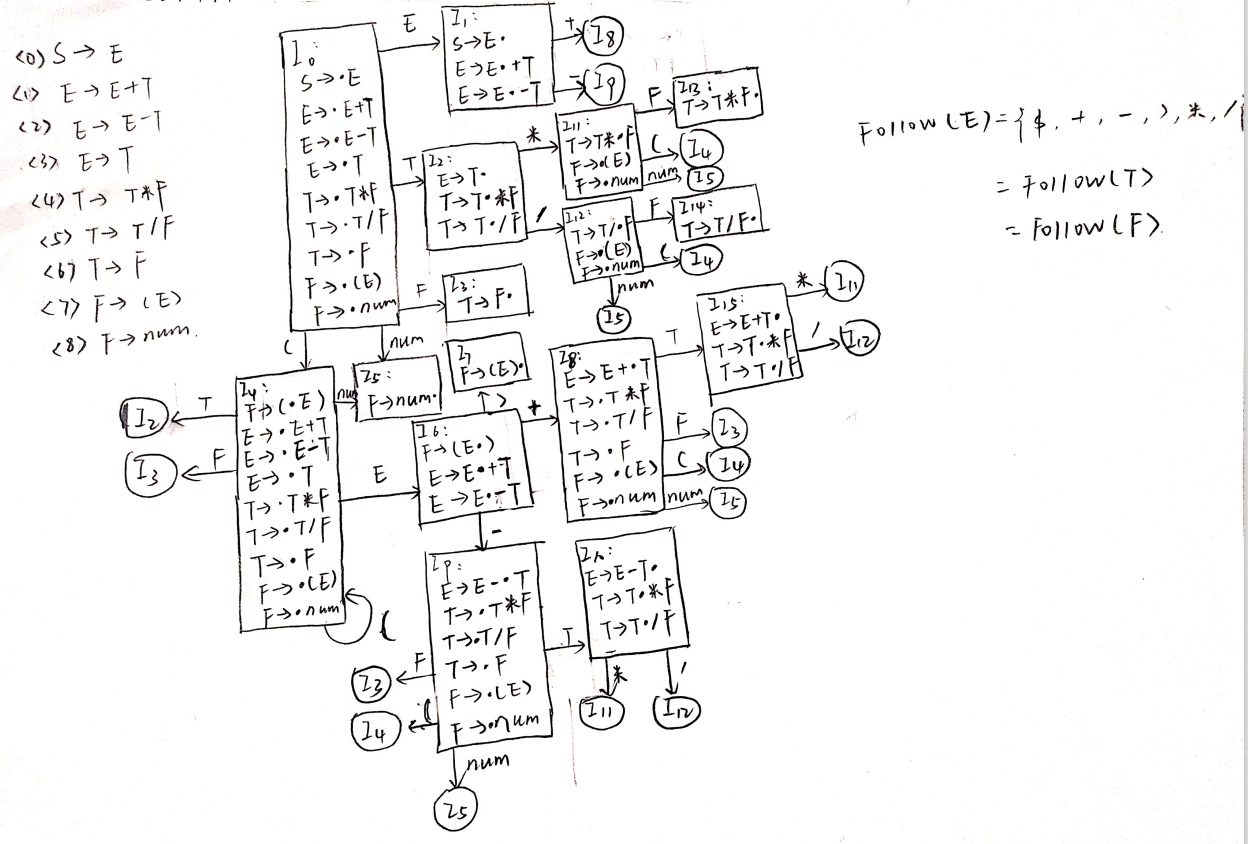 <0> S → E
<1> E → E+T
<2> E → E-T
<3> E → T
<4> T → T*F
<5> T → T/F
<6> T → F
<7> F → (E)
<8> F → num.
I0:
S → ·E
E → ·E+T
E → ·E-T
E → ·T
T → ·T*F
T → ·T/F
T → ·F
F → ·(E)
F → ·num
E
I1:
S → E·
E → E·+T
E → E·-T
+
I8
-
I9
T
I2:
E → T·
T → T·*F
T → T·/F
*
I11:
T → T*·F
F → ·(E)
F → ·num
F
I13:
T → T*F·
(
I4
num
I5
/
I12:
T → T/·F
F → ·(E)
F → ·num
F
I14:
T → T/F·
(
I4
num
I5
F
I3:
T → F·
(
num
I5:
F → num·
I4:
F → (·E)
E → ·E+T
E → ·E-T
E → ·T
T → ·T*F
T → ·T/F
T → ·F
F → ·(E)
F → ·num
T
I2
F
I3
num
(
E
I6:
F → (E·)
E → E·+T
E → E·-T
)
I7
F → (E)·
+
I8:
E → E+·T
T → ·T*F
T → ·T/F
T → ·F
F → ·(E)
F → ·num
T
I15:
E → E+T·
T → T·*F
T → T·/F
*
I11
/
I12
F
I3
(
I4
num
I5
-
I9:
E → E-·T
T → ·T*F
T → ·T/F
T → ·F
F → ·(E)
F → ·num
F
I3
(
I4
num
I5
T
I10:
E → E-T·
T → T·*F
T → T·/F
*
I11
/
I12
Follow(E)={$, +, -, ), *, /
= Follow(T)
= Follow(F).